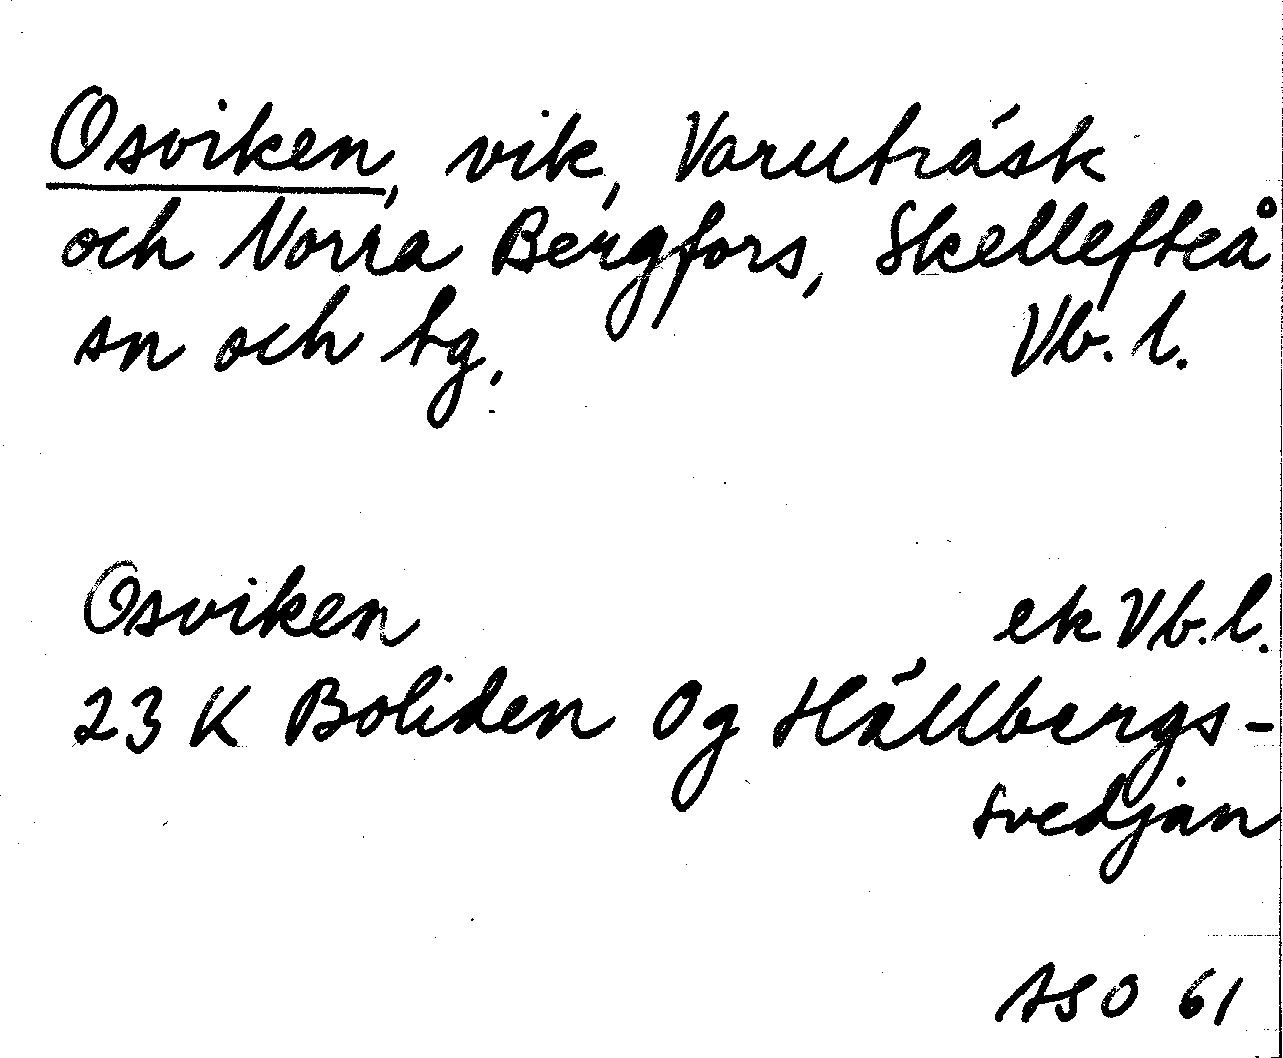 Osviken, vik, Varuträsk
och Norra Bergfors, Skellefteå
sn och tg. Vb. l.
Osviken ek Vb. l.
23 K Boliden Og Hällbergs-
svedjan
ASO 61